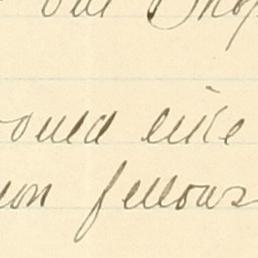 our Shop
ould like
on fellows